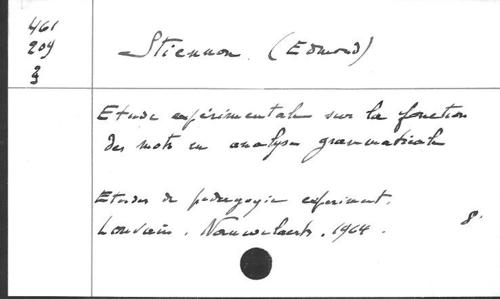 461
209
3
Stiennon. (Edmond)
Etude expérimentale sur la fonction
des mots en analyse grammaticale
Etudes de pédagogie expériment.
Louvain. Nauwelaerts. 1964. 8°